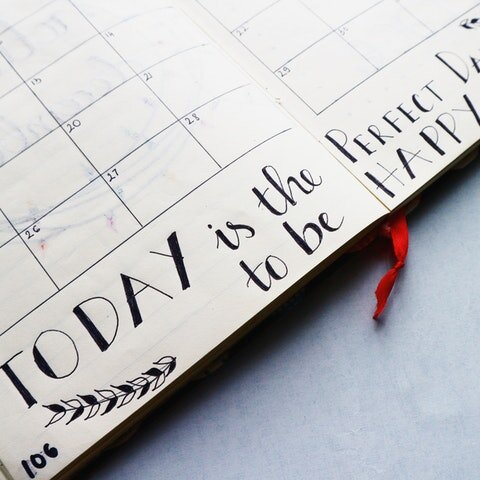 13
14
20
21
22
26
27
28
29
30
TODAY is the
to be
PERFECT DA
HAPPY
106